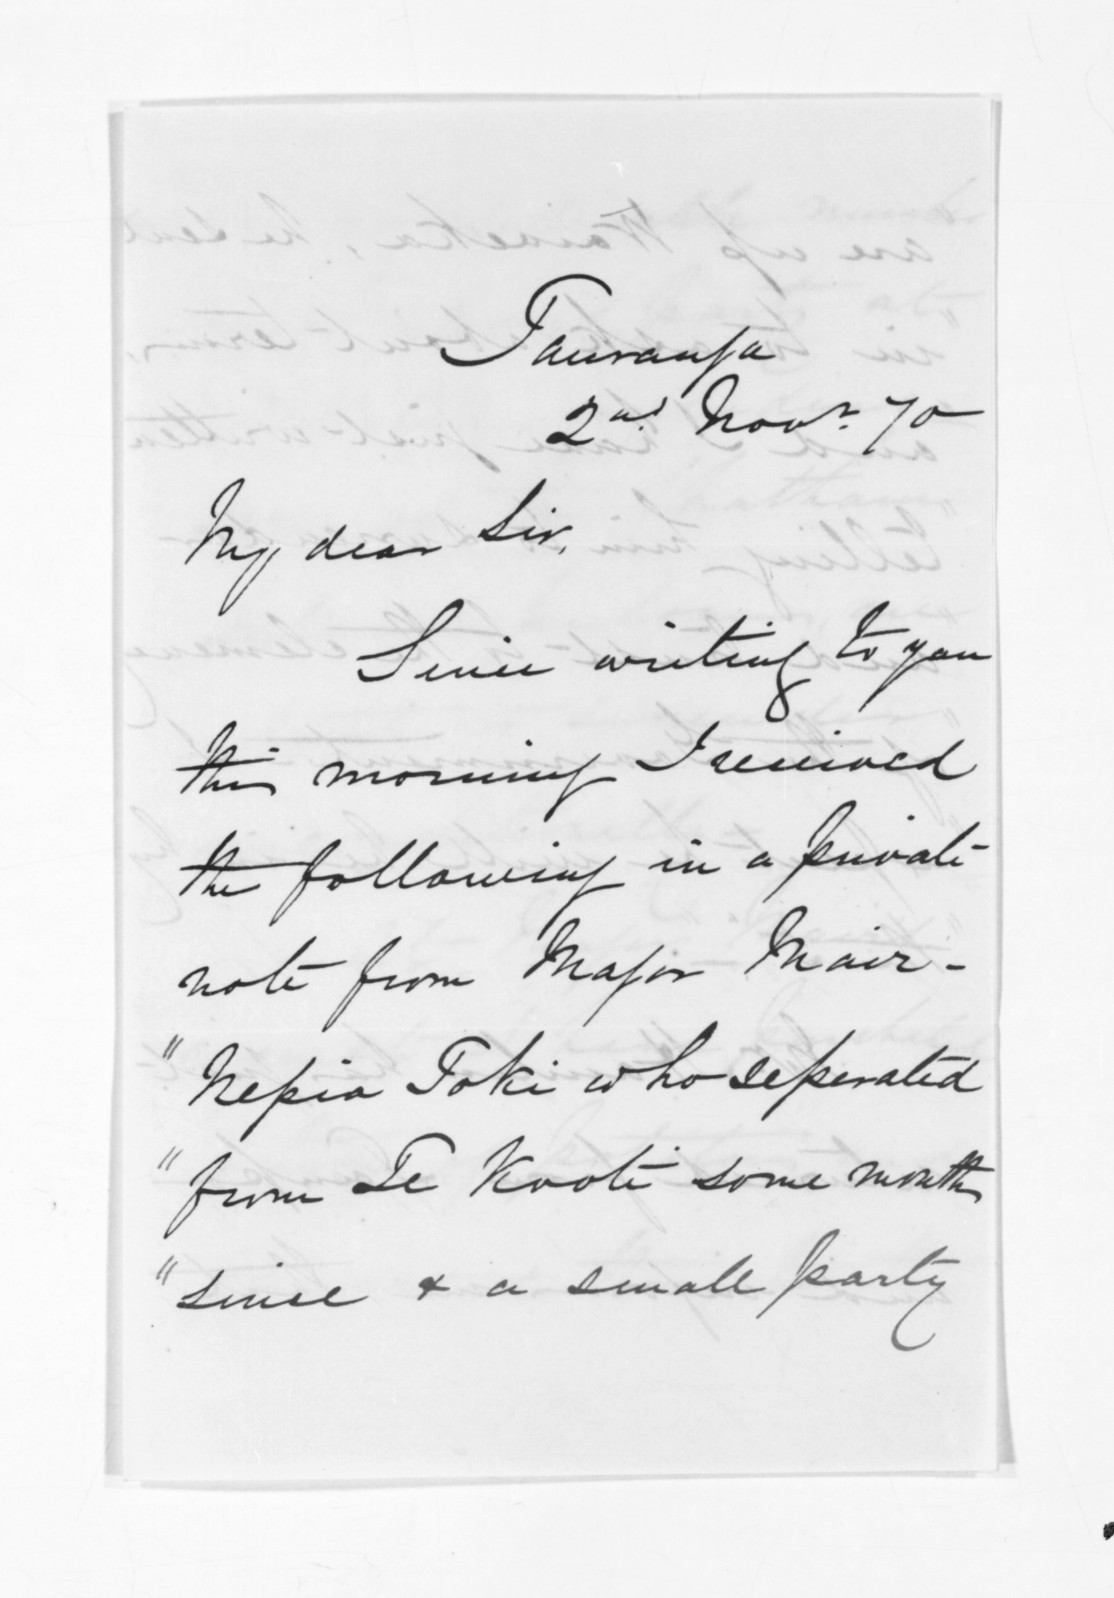 Tauranga
2nd Novr. 70
My dear Sir,
Since writing to you
this morning I received
the following in a private
note from Major Mair -
" Nepia Toki who seperated
" from Te Kooti some months
" since & a small party